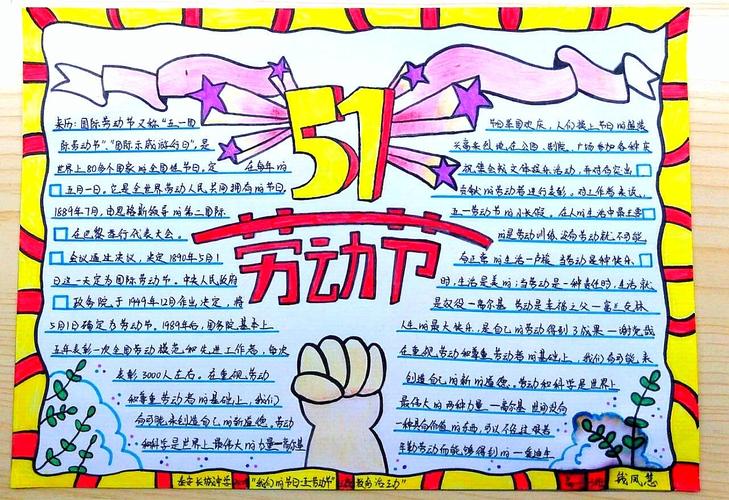 51
劳动节
来历:国际劳动节又称"五一国
际劳动节"、"国际示威游行日",是
世界上80多个国家的全国性节日。定 在每年的
五月一日。它是全世界劳动人民共同拥有的节日。
1889年7月,由恩格斯领导的第二国际
在巴黎举行代表大会。
会议通过决议,决定1890年5月1
日这一天定为国际劳动节。中央人民政府
政务院于1949年12月作出决定,将
5月1日确定为劳动节。1989年后,国务院基本上
五年表彰一次全国劳动模范和先进工作者,每次
表彰3000人左右。在重视劳动
和尊重劳动者的基础上,我们
有可能来创造自己的新道德,劳动
和科学是世界上最伟大的力量—高尔基
节日举国欢庆,人们换上节日的盛装
兴高采烈地在公园、剧院、广场参加各种庆
祝集会或文体娱乐活动,并对有突出
贡献的劳动者进行表彰,对工作者来说,
五一劳动节的小长假。在人的生活中最主要
的是劳动训练,没有劳动就不可能
有正常的生活—卢梭 当劳动是种快乐
时,生活是美的;当劳动是一种责任时,生活就
是奴役—高尔基 劳动是幸福之父—富兰克林
人生的最大快乐,是自己的劳动得到了成果—谢觉哉
在重视劳动和尊重劳动者的基础上,我们有可能来
创造自己的新的道德。劳动和科学是世界上
最伟大的两种力量—高尔基 世间没有
一种具有价值的东西,可以不经过艰苦
辛勤劳动而能够得到的—爱迪生
"我们的节日·五一劳动节"